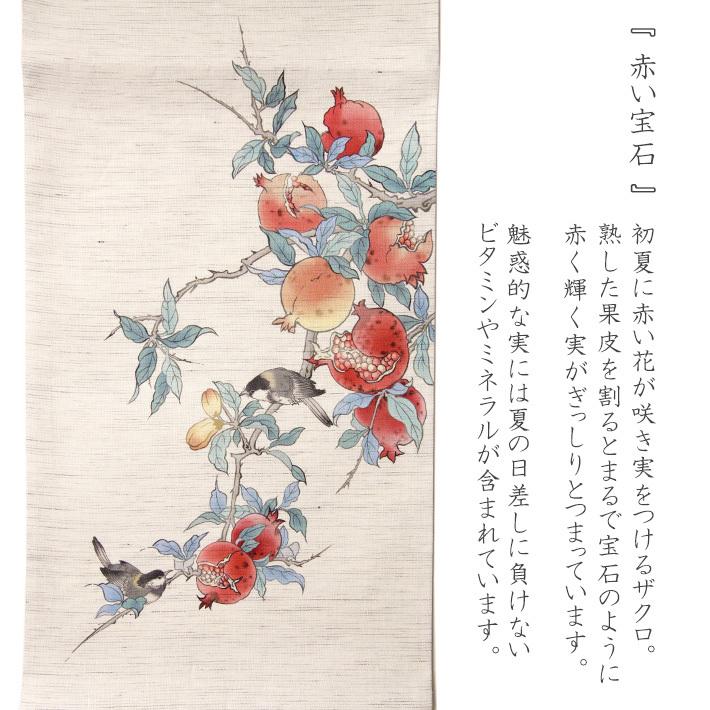 『赤い宝石』
初夏に赤い花が咲き実をつけるザクロ。
熟した果皮を割るとまるで宝石のように
赤く輝く実がぎっしりとつまっています。
魅惑的な実には夏の日差しに負けない
ビタミンやミネラルが含まれています。